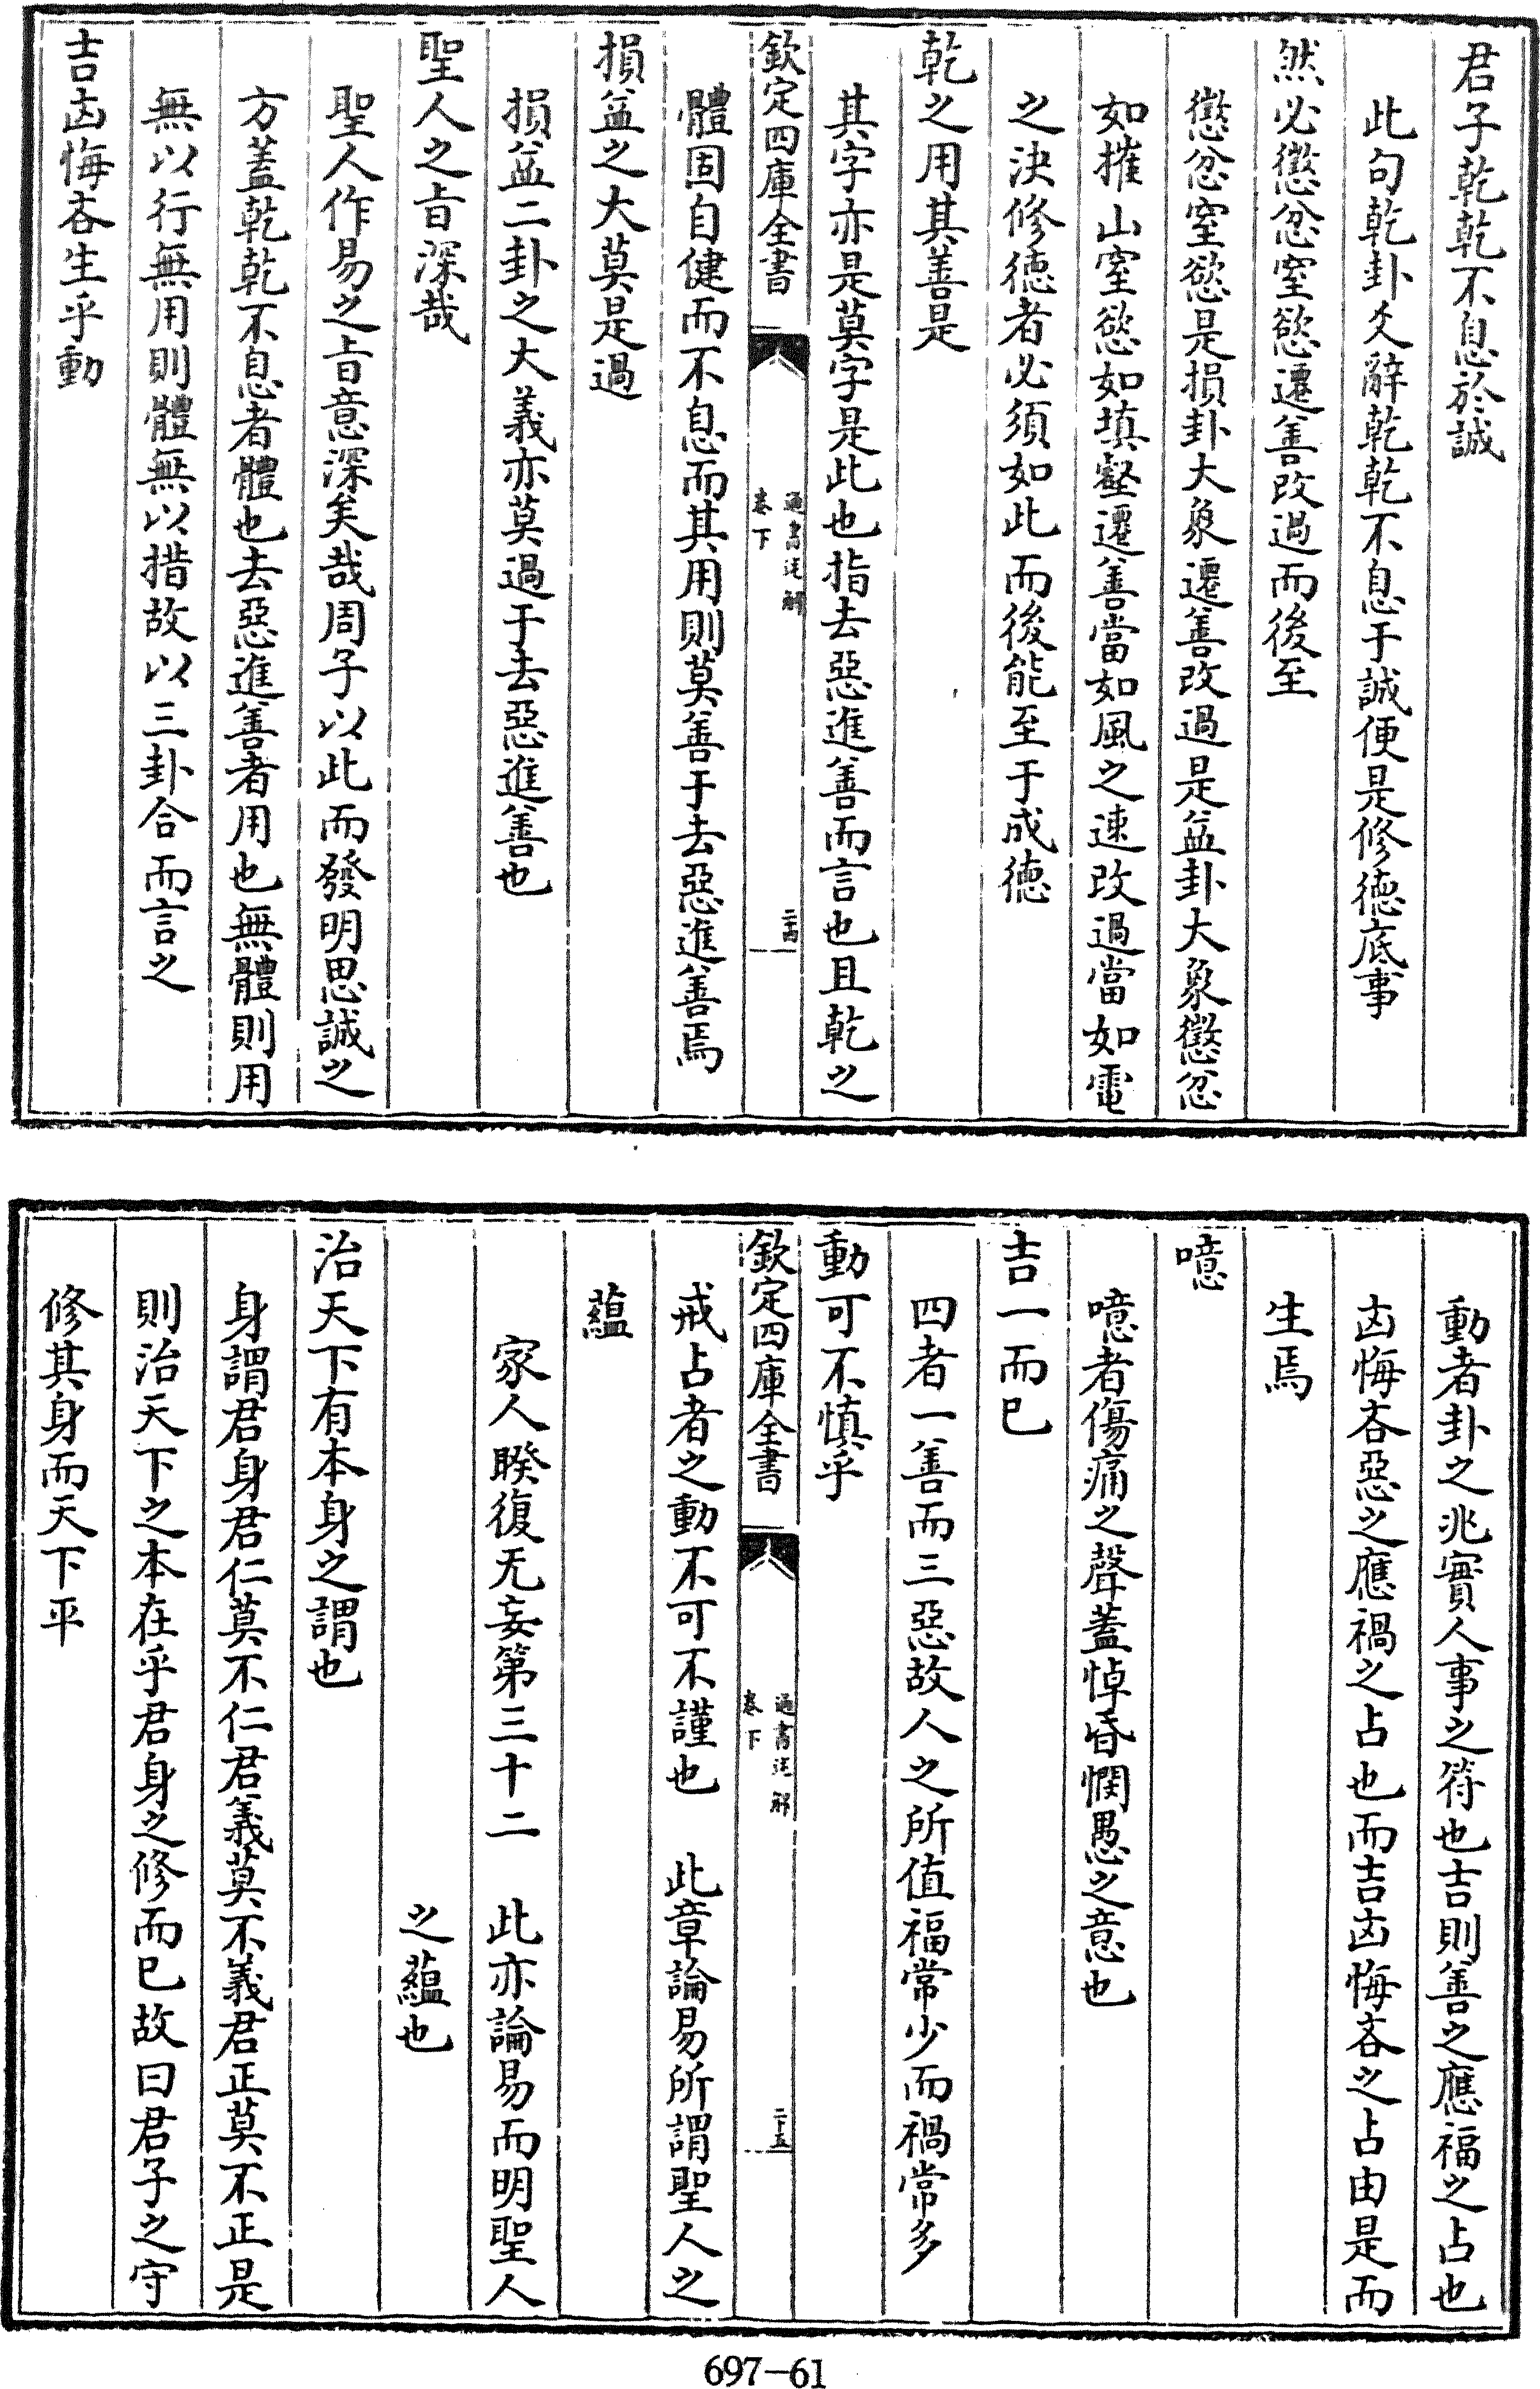 君子乾乾不息於誠
此句乾卦爻辭乾乾不息于誠便是修徳底事
然必懲忿窒慾遷善改過而後至
懲忿窒慾是損卦大象遷善改過是益卦大象懲忿
如摧山窒慾如填壑遷善當如風之速改過當如電
之決修徳者必須如此而後能至于成徳
乾之用其善是
其字亦是莫字是此也指去惡進善而言也且乾之
欽定四庫全書
通書述解
卷下
二十四
體固自健而不息而其用則莫善于去惡進善焉
損益之大莫是過
損益二卦之大義亦莫過于去惡進善也
聖人之㫖深哉
聖人作易之㫖意深矣哉周子以此而發明思誠之
方蓋乾乾不息者體也去惡進善者用也無體則用
無以行無用則體無以措故以三卦合而言之
吉凶悔吝生乎動
動者卦之兆實人事之符也吉則善之應福之占也
凶悔吝惡之應禍之占也而吉凶悔吝之占由是而
生焉
噫
噫者傷痛之聲蓋悼昏憫愚之意也
吉一而已
四者一善而三惡故人之所值福常少而禍常多
動可不慎乎
欽定四庫全書
通書述解
卷下
二十五
戒占者之動不可不謹也　此章論易所謂聖人之
藴
家人睽復无妄第三十二　此亦論易而明聖人
之藴也
治天下有本身之謂也
身謂君身君仁莫不仁君義莫不義君正莫不正是
則治天下之本在乎君身之修而已故曰君子之守
修其身而天下平
697-61